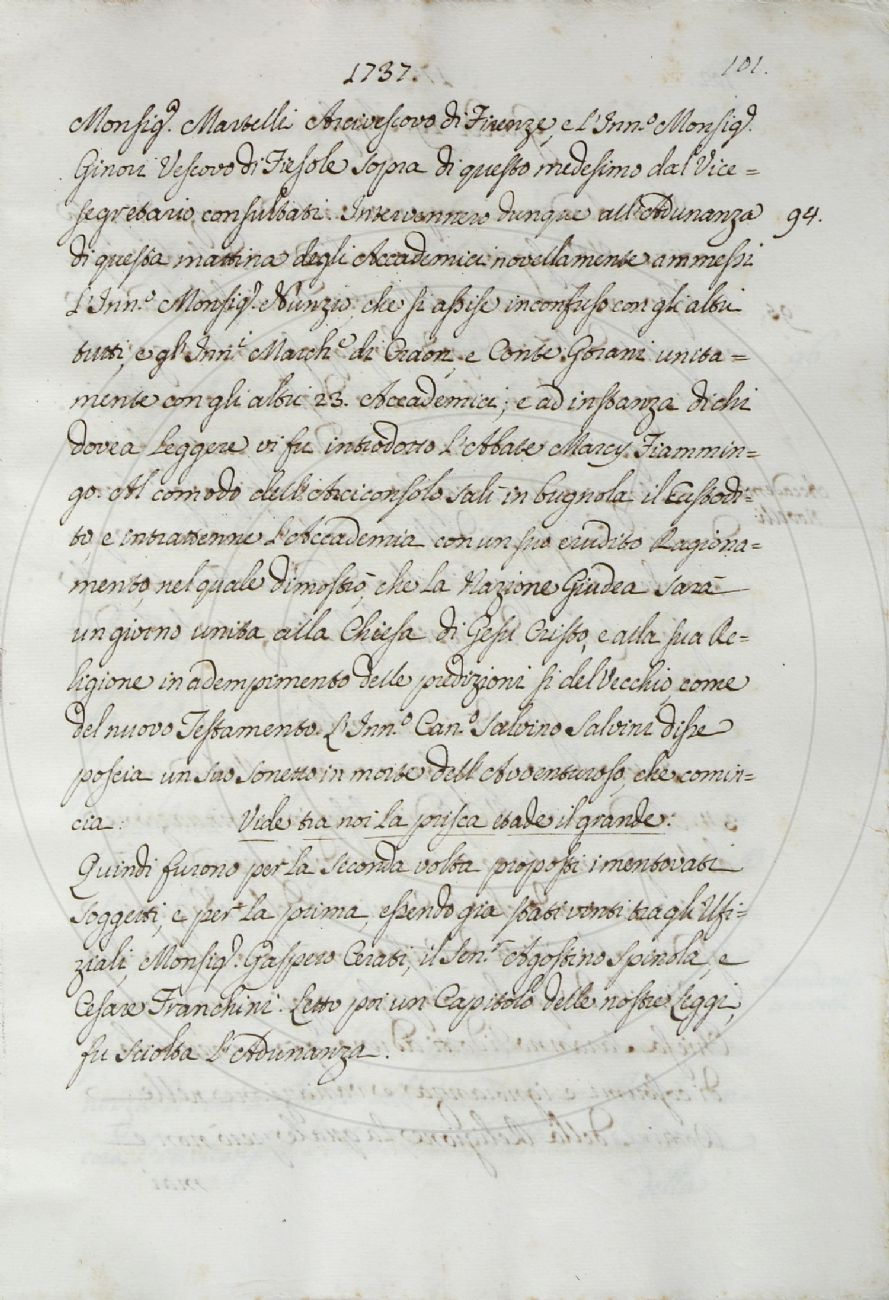 1737.
101.
Monsig.r Martelli Arcivescovo di Firenze, e l'Inn.o Monsig.r
Ginori Vescovo di Fiesole sopra di questo medesimo dal Vice=
segretario consultati. Intervennero dunque all'Adunanza
94.
di questa mattina degli Accademici novellamente ammessi
l'Inn.o Monsig.r Nunzio che si assise inconfuso con gli altri
tutti, e gl'Inn.i March.e di Craon, e Conte Gorani unita=
mente con gli altri 23. Accademici; e ad instanza di chi
dovea leggere vi fu introdotto l'Abate Marcy Fiammin=
go. Al comodo dell'Arciconsolo salì in bugnola il Custodi=
to, e intrattenne l'Accademia con un suo erudito Ragiona=
mento, nel quale dimostrò, che la Nazione Giudea sarà
un giorno unita alla Chiesa di Gesù Cristo, e alla sua Re=
ligione in adempimento delle predizioni sì del Vecchio, come
del nuovo Testamento. L'Inn.o Can.o Salvino Salvini disse
poscia un suo sonetto in morte dell'Avventuroso, che comin=
cia: Vide tra noi la prisca etade il grande:
Quindi furono per la seconda volta proposti i mentovati
soggetti, e per la prima, essendo già stati vinti tra gli Ufi=
ziali, Monsig.r Gaspero Cerati, il Sen.r Agostino Spinola, e
Cesare Franchini. Letto poi un Capitolo delle nostre Leggi,
fu sciolta l'Adunanza.